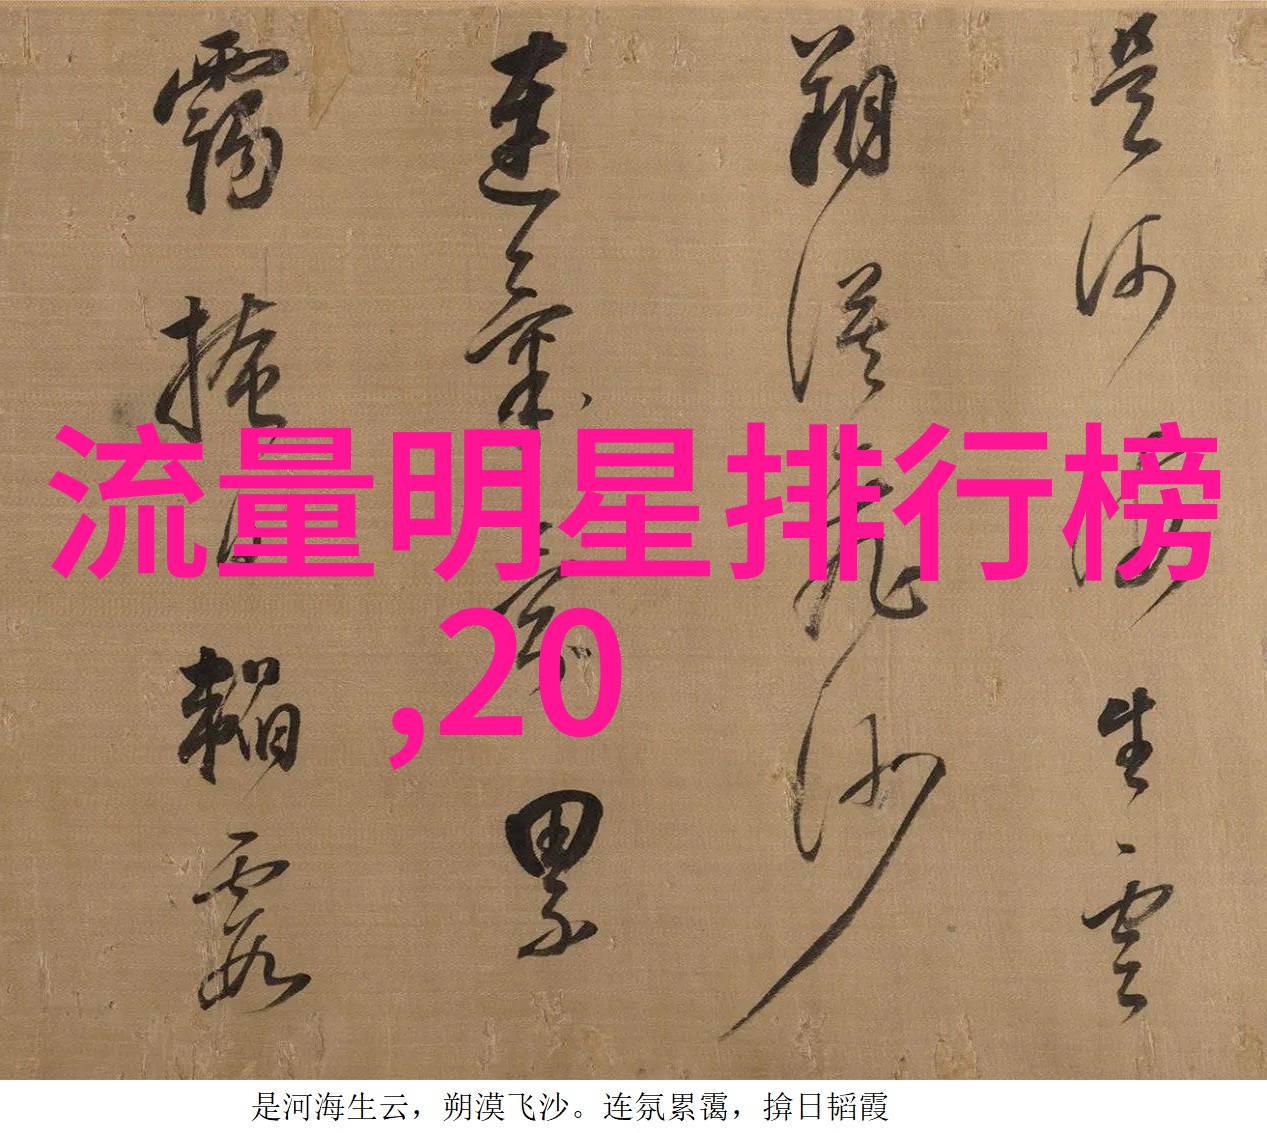 是河海生雲
朔漠飛沙
連氣累
靄掩日韜霞
流量明星排行榜
,20
是河海生云，朔漠飞沙。连氛累霭，揜日韬霞